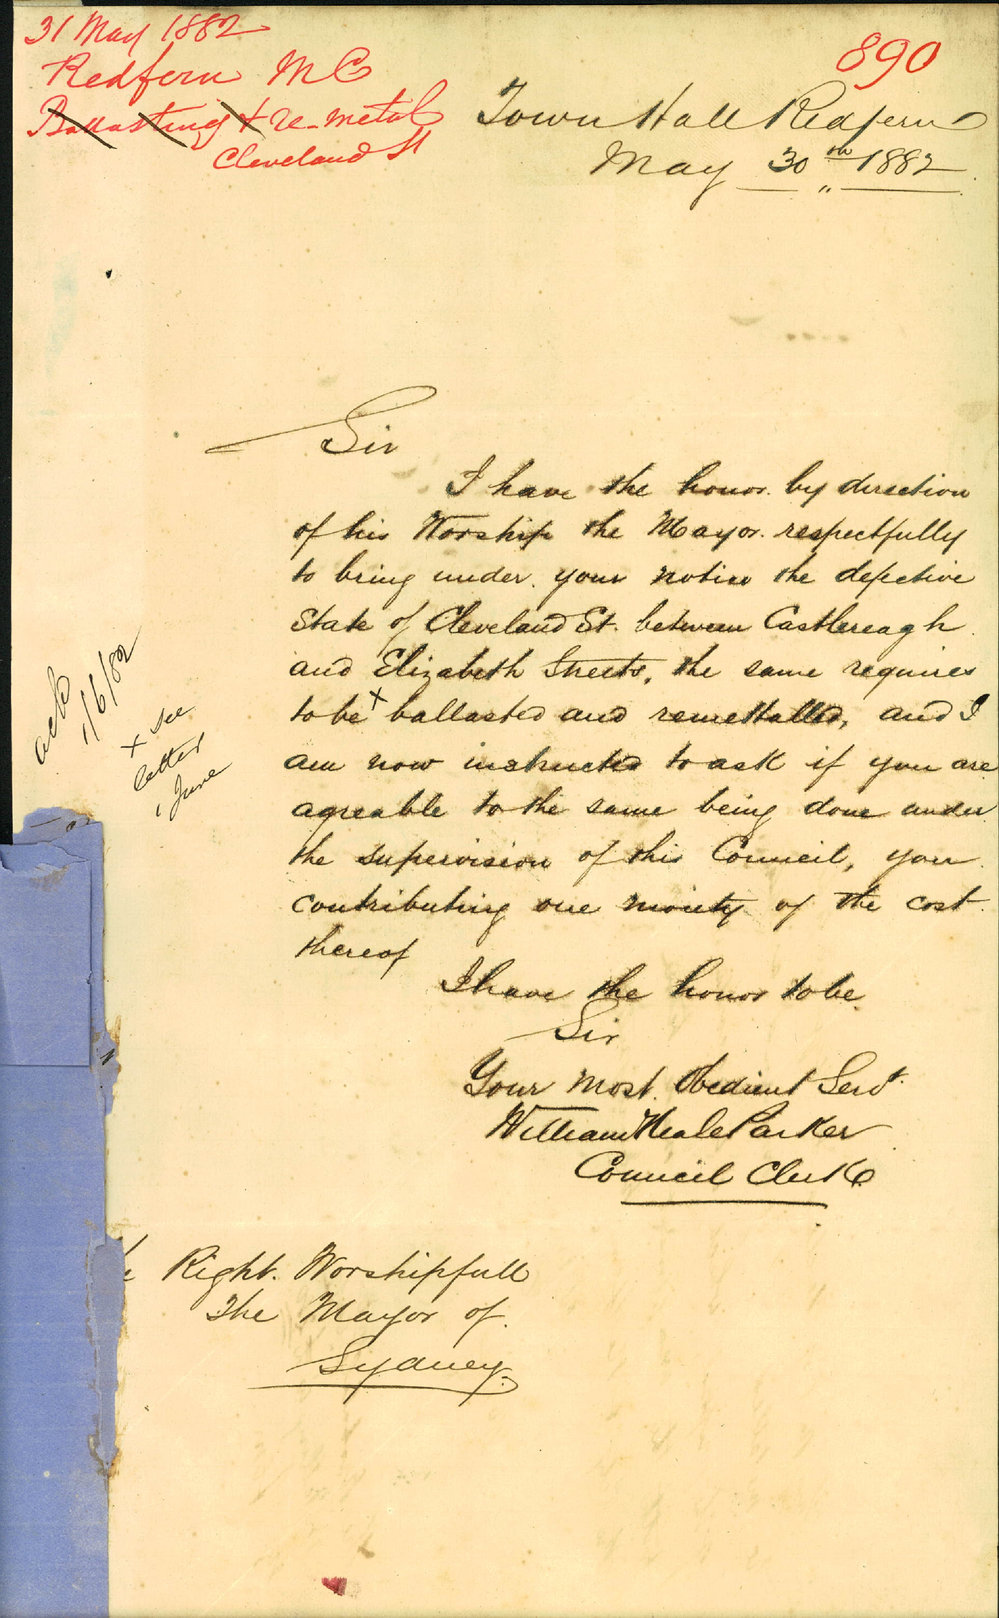 31 May 1882
Redfern M C
Ballasting & re-metal
Cleveland St
890
Town Hall Redfern
May 30th 1882
Sir
I have the honor by direction
of his Worship the Mayor respectfully
to bring under your notice the defective
State of Cleveland St. between Castlereagh
and Elizabeth Streets, the same requires
to be x ballasted and remettalled, and I
am now instructed to ask if you are
agreable to the same being done under
the supervision of this Council, you
contributing one moiety of the cost
thereof
I have the honor to be
Sir
Your most Obedient Servt.
William Neale Parker
Council Clerk
Right Worshipfull
The Mayor of
Sydney
ack
1/6/82
x see
letter
1 June